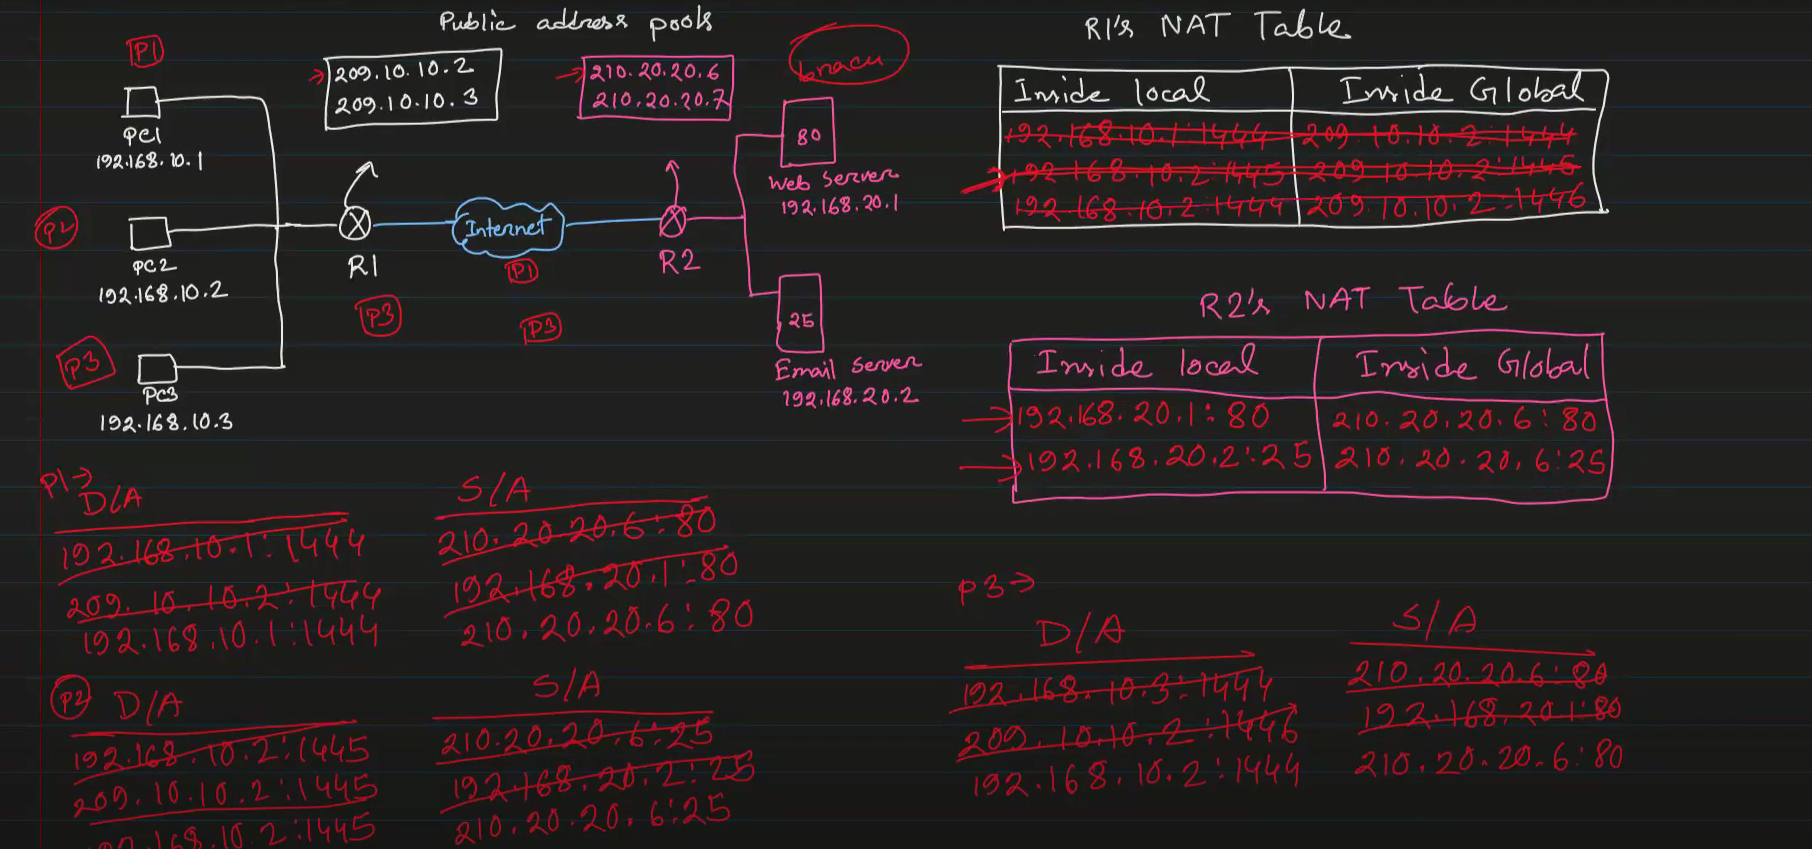 Public address pools
209.10.10.2
209.10.10.3
210.20.20.6
210.20.20.7
bracu
P1
PC1
192.168.10.1
P2
PC2
192.168.10.2
P3
PC3
192.168.10.3
R1
P3
Internet
P1
P3
R2
80
Web Server
192.168.20.1
25
Email Server
192.168.20.2
R1's NAT Table
Inside local Inside Global
192.168.10.1:1444 209.10.10.2:1444
192.168.10.2:1445 209.10.10.2:1445
192.168.10.2:1444 209.10.10.2:1446
R2's NAT Table
Inside local Inside Global
192.168.20.1:80 210.20.20.6:80
192.168.20.2:25 210.20.20.6:25
P1→
D/A S/A
192.168.10.1:1444 210.20.20.6:80
209.10.10.2:1444 192.168.20.1:80
192.168.10.1:1444 210.20.20.6:80
P2 D/A S/A
192.168.10.2:1445 210.20.20.6:25
209.10.10.2:1445 192.168.20.2:25
192.168.10.2:1445 210.20.20.6:25
P3→
D/A S/A
192.168.10.3:1444 210.20.20.6:80
209.10.10.2:1446 192.168.20.1:80
192.168.10.2:1444 210.20.20.6:80